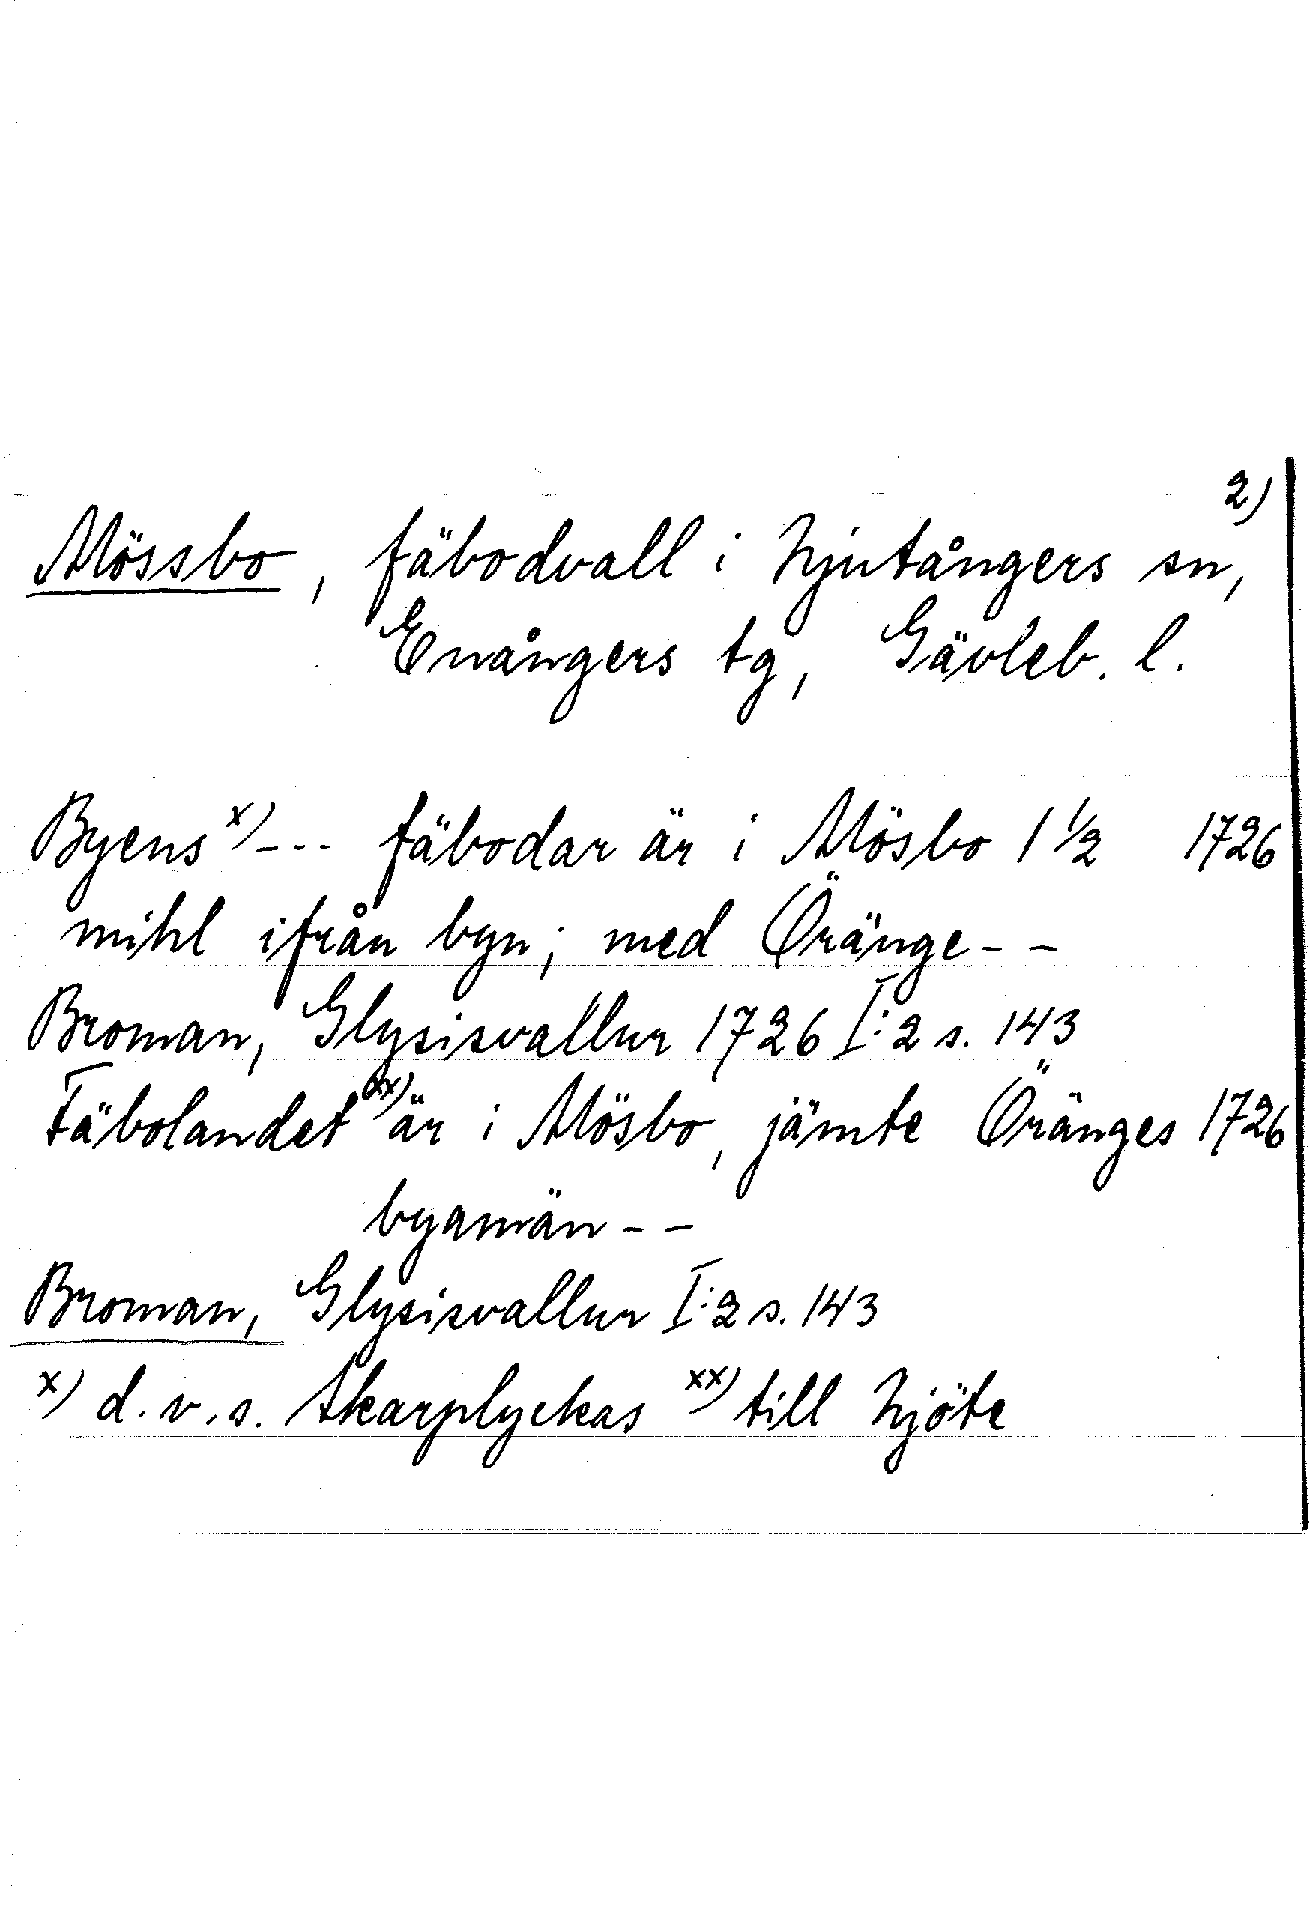 2)
Mössbo, fäbodvall i Njutångers sn,
Enångers tg, Gävleb. l.
Byens x) --- fäbodar är i Mösbo 1 1/2 1726
mihl ifrån byn; med Öränge--
Broman, Glysisvallur 1726 I:2 s. 143
Fäbolandet xx) är i Mösbo, jämte Öränges 1726
byamän--
Broman, Glysisvallur I:2 s. 143
x) d.v.s. Skarplyckas xx) till Njöte